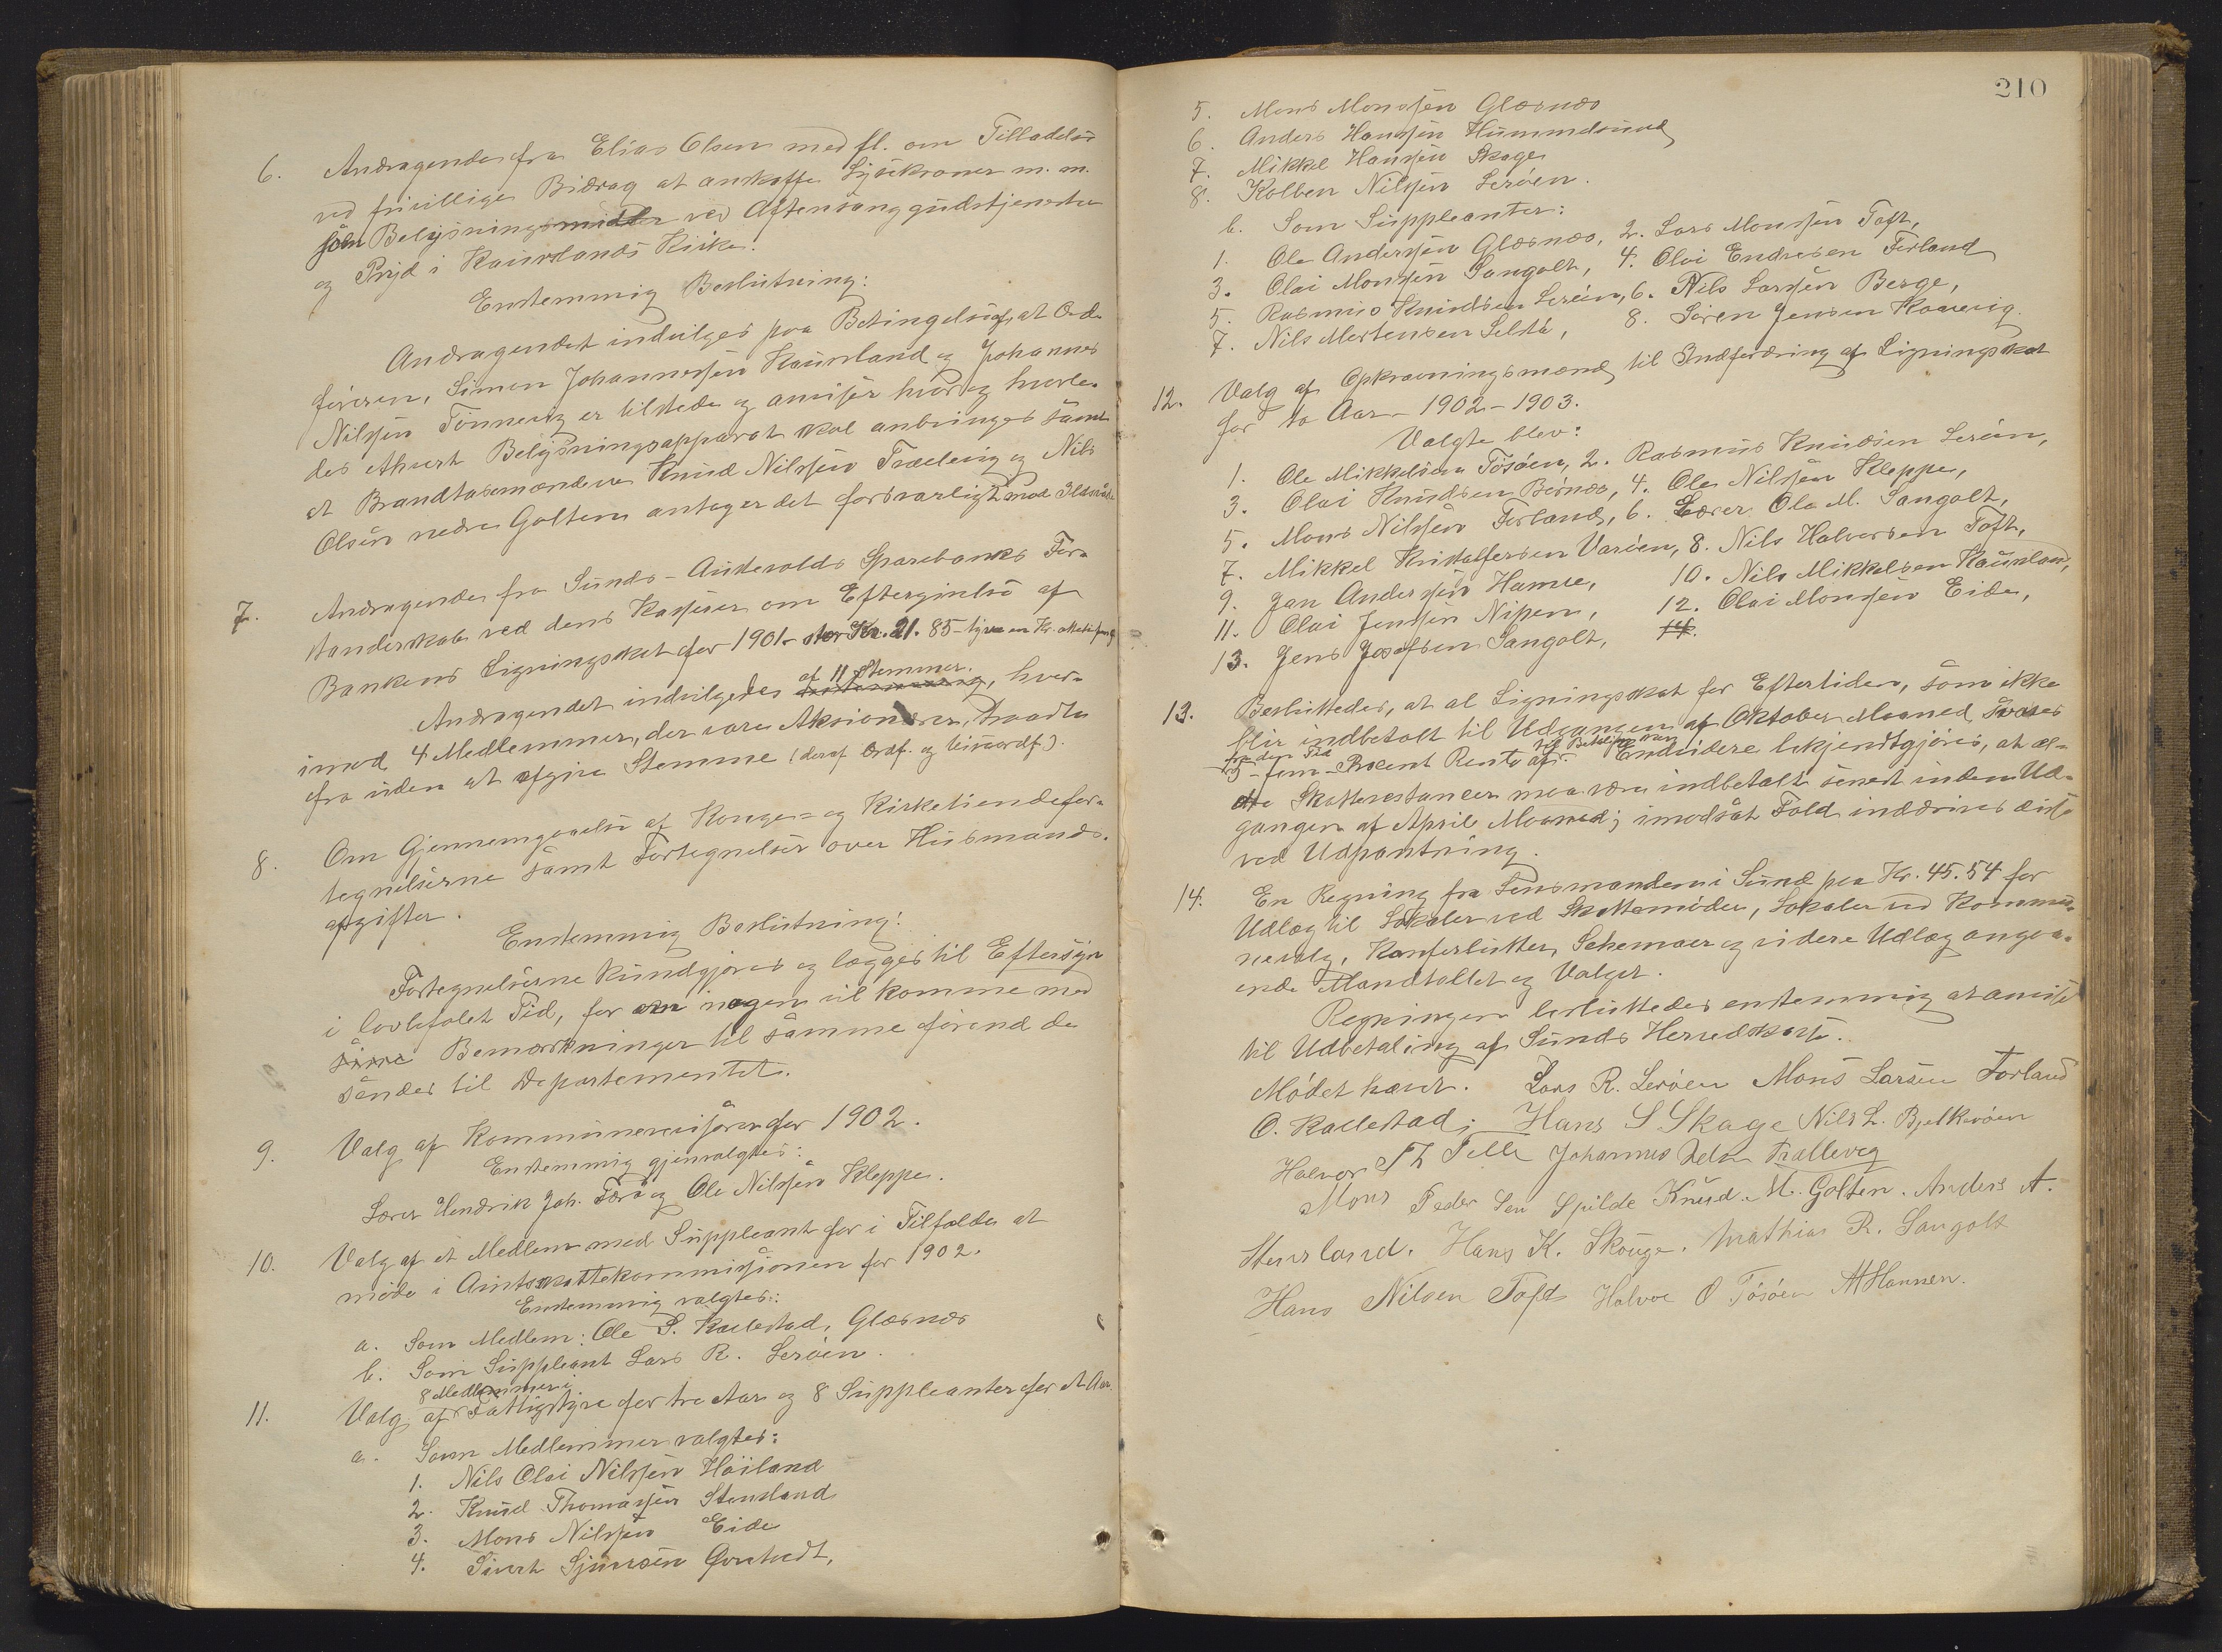 6. Andragende fra Elias Olsen med fl. om Tilladelse
ved frivillige Bidrag at anskaffe Lysekroner m. m.
som Belysningsmidler ved Aftensanggudstjenester
og Pryd i Kausland's Kirke.
Enstemmig Beslutning:
Andragendet indvilges paa Betingelse af, at Ord-
føreren, Simon Johannessen Kausland og Johannes
Nilssen Tønnevig er tilstede og anviser hvor og hvorle-
des ethvert Belysningsapparat skal anbringes samt
at Brandtasmændene Knud Nilssen Trællevig og Nils
Olsen nedre Golten antager det forsvarligt mod Ildsvåde
7. Andragende fra Sunds-Austevolds Sparebanks For-
standerskab ved dens Kasserer om Eftergivelse af
Bankens Ligningsskat for 1901 - stor Kr. 21.85 - tyve en Kr.
Andragendet indvilgedes af 11 Stemmer, hver-
imod 4 Medlemmer, der vare Aksionærer, traadte
fra uden at afgive Stemme (deraf Ordf. og viseordf.).
8. Om Gjennemgaaelse af Konge- og Kirketiendefor-
tegnelserne samt Fortegnelser over Husmands-
afgifter.
Enstemmig Beslutning:
Fortegnelserne kundgjøres og lægges til Eftersyn
i lovbefalet Tid, for om nogen vil komme med
sine Bemærkninger til samme førend de
sendes til Departementet.
9. Valg af Kommunerevisorer for 1902.
Enstemmig gjenvalgtes:
Lærer Hendrik Joh. Færø og Ole Nilssen Kleppe.
10. Valg af et Medlem med Suppleant for i Tilfælde at
møde i Amtsskattekommissionen for 1902.
Enstemmig valgtes:
a. Som Medlem: Ole S. Kallestad, Glæsnæs
b. Som Suppleant Lars R. Lerøen.
8 Medlemmer i
11. Valg af Fattigstyre for tre Aar og 8 Suppleanter for et Aar.
a. Som Medlemmer valgtes:
1. Nils Olai Nilssen Høiland
2. Knud Thomassen Stensland
3. Mons Nilssen Eide
4. Sivert Sjursen
210
5. Mons Monssen Glæsnæs
6. Anders Hanssen Hummelsund
7. Mikkel Hanssen Skage
8. Kolben Nilssen Lerøen.
b. Som Suppleanter:
1. Ole Anderssen Glæsnæs, 2. Lars Monssen Toft,
3. Olai Monssen Sangolt, 4. Olai Endresen Forland
5. Rasmus Knudsen Lerøen, 6. Nils Larssen Berge,
7. Nils Mortensen Selstø, 8. Søren Jensen Kaarevig.
12. Valg af Opkrævningsmænd til Indfordring af Ligningsskat
for to Aar - 1902 - 1903.
Valgte blev:
1. Ole Mikkelsen Tøsøen, 2. Rasmus Knudsen Lerøen,
3. Olai Knudsen Børnæs, 4. Ole Nilssen Kleppe,
5. Mons Nilssen Forland, 6. Lærer Ole M. Sangolt,
7. Mikkel Kristoffersen Varøen, 8. Nils Halvorsen Toft,
9. Jan Anderssen Hamre, 10. Nils Mikkelsen Kausland,
11. Olai Jenssen Nipen, 12. Olai Monssen Eide,
13. Jens Josefsen Sangolt, 14.
13. Besluttedes, at al Ligningsskat for Eftertiden, som ikke
blir indbetalt til Udgangen af Oktober Maaned svares
fra den Tid til Betaling sker
5 - fem - Procent Rente af. Endvidere bekjendtgjøres, at æl-
dre Skatterestancer maa være indbetalt senest inden Ud-
gangen af April Maaned; imodsat Fald inddrives disse
ved Udpantning.
14. En Regning fra Lensmanden i Sund paa Kr. 45.54 for
Udlæg til Lokaler ved Skattemøder, Lokaler ved Kommu-
nevalg, Konferlister, Schemaer og videre Udlæg angaa-
ende Mandtallet og Valget.
Regningen besluttedes enstemmig at anvise
til Udbetaling af Sunds Herredskasse.
Mødet hævet. Lars R. Lerøen Mons Larsen Forland
O. Kallestad; Hans S Skage Nils L. Bjelkerøen
Halvor Th Telle Johannes Trællevig
Mons Peder Sen Spilde Knud M. Golten. Anders A.
Stensland. Hans K. Skouge. Mathias R. Sangolt
Hans Nilsen Toft Halvor O Tøsøen Hannen.